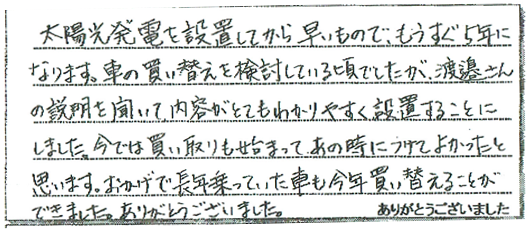 太陽光発電を設置してから早いもので、もうすぐ5年に
なります。車の買い替えを検討している頃でしたが、渡邉さん
の説明を聞いて内容がとてもわかりやすく設置することに
しました。今では買い取りも始まって、あの時につけてよかったと
思います。おかげで長年乗っていた車も今年買い替えることが
できました。ありがとうございました。
ありがとうございました